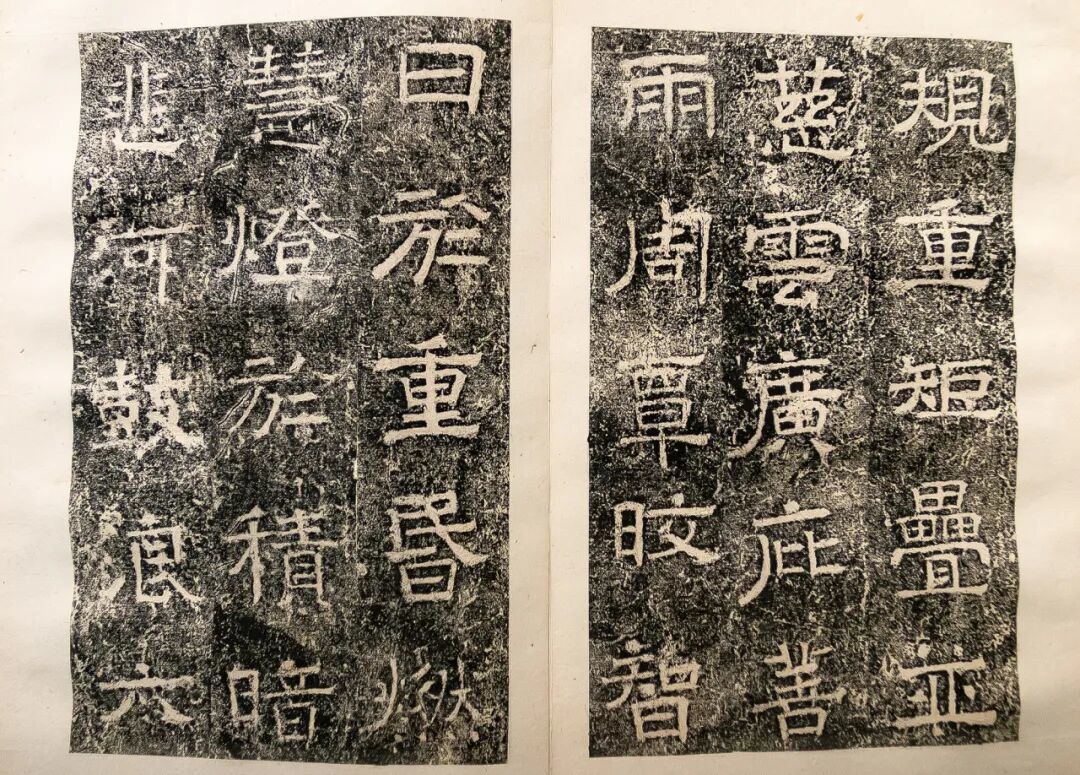 規重矩疊並
慈雲廣庇善
雨周覃晈智
日於重昏燃
慧燈於積暗
悲河鼓浪六